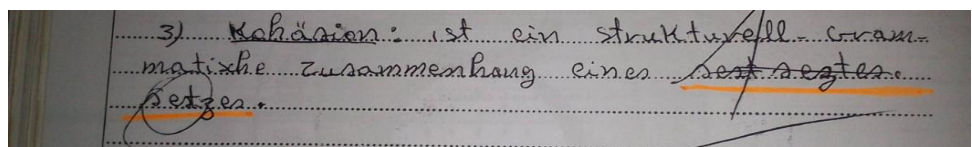 3) Kohäsion: ist ein strukturell-Gram-
matixhe zusammenhang eines
setzes.